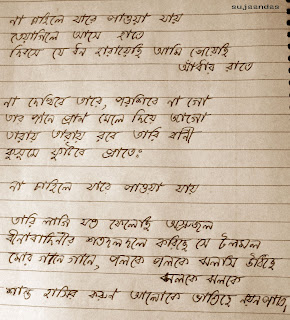 sujaandas
না চাহিলে যারে পাওয়া যায়
তেয়াগিলে আসে হাতে
দিবসে যে ধন হারায়েছি আমি পেয়েছি
আঁধার রাতে
না দেখিবে তারে, পরশিবে না গো
তার পানে প্রাণ মেলে দিয়ে জাগো
তারায় তারায় রবে তারি বাণী
কুসুমে ফুটিবে প্রাতে:
না চাহিলে যারে পাওয়া যায়
তারি লাগি যত ফেলেছি অশ্রুজল
বীনাবাদিনীর শতদলদলে করিছে সে টলমল
মোর গানে গানে, পলকে পলকে ঝলসি উঠিছে
ঝলকে ঝলকে
শান্ত হাসির করুন আলোকে ভাতিছে নয়নপাতে